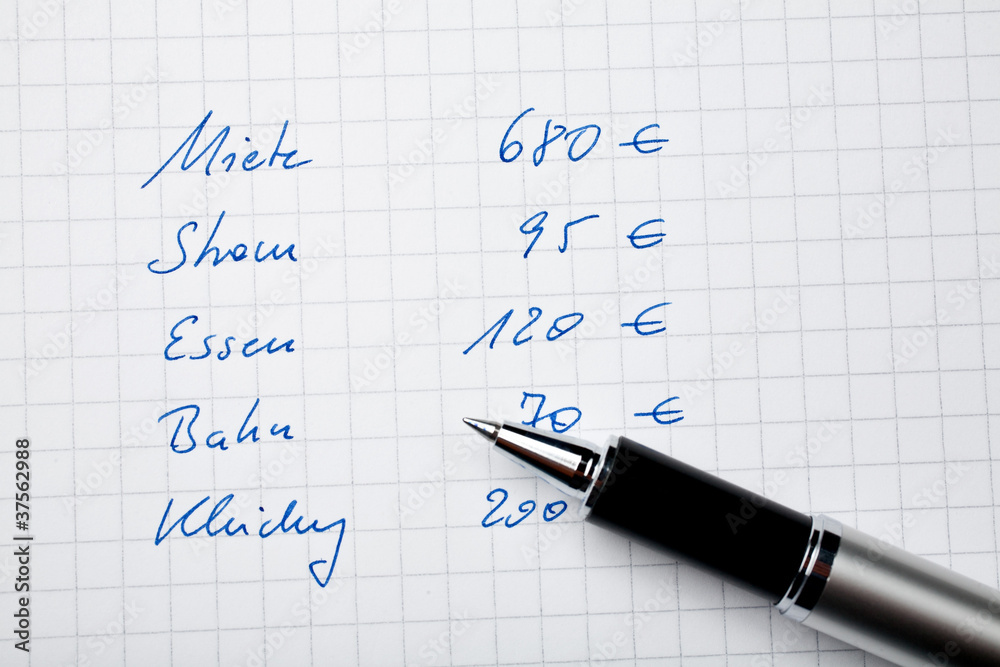 Miete 680 €
Strom 95 €
Essen 120 €
Bahn 70 €
Kleidung 200
Adobe Stock | #37562988